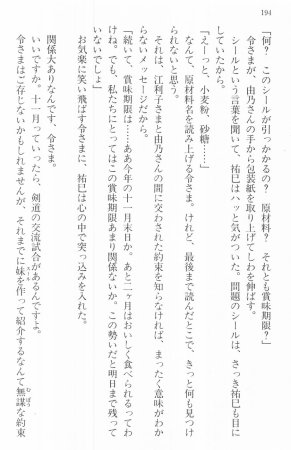 194
「何？ このシールが引っかかるの？ 原材料？ それとも賞味期限？」
令さまが、由乃さんの手から包装紙を取り上げてしわを伸ばす。
シールという言葉を聞いて、祐巳はハッと気がついた。問題のシールは、さっき祐巳も目に
していたから。
「えーっと、小麦粉、砂糖……」
なんて、原材料名を読み上げる令さま。けれど、最後まで読んだとこで、きっと何も見つけ
られないと思う。
それは、江利子さまと由乃さんの間に交わされた約束を知らなければ、まったく意味がわか
らないメッセージだから。
「続いて、賞味期限は……ああ今年の十一月末日か。あと二ヶ月はおいしく食べられるってわ
けね。でも、私たちにとってはこの賞味期限あまり関係ないか。この勢いだと明日まで残って
ないでしょ」
お気楽に笑い飛ばす令さまに、祐巳は心の中で突っ込みを入れた。
関係大ありなんです、令さま。
いいですか。十一月っていったら、剣道の交流試合があるんですよ。
令さまはご存じないかもしれませんが、それまでに妹を作って紹介するなんて無謀な約束